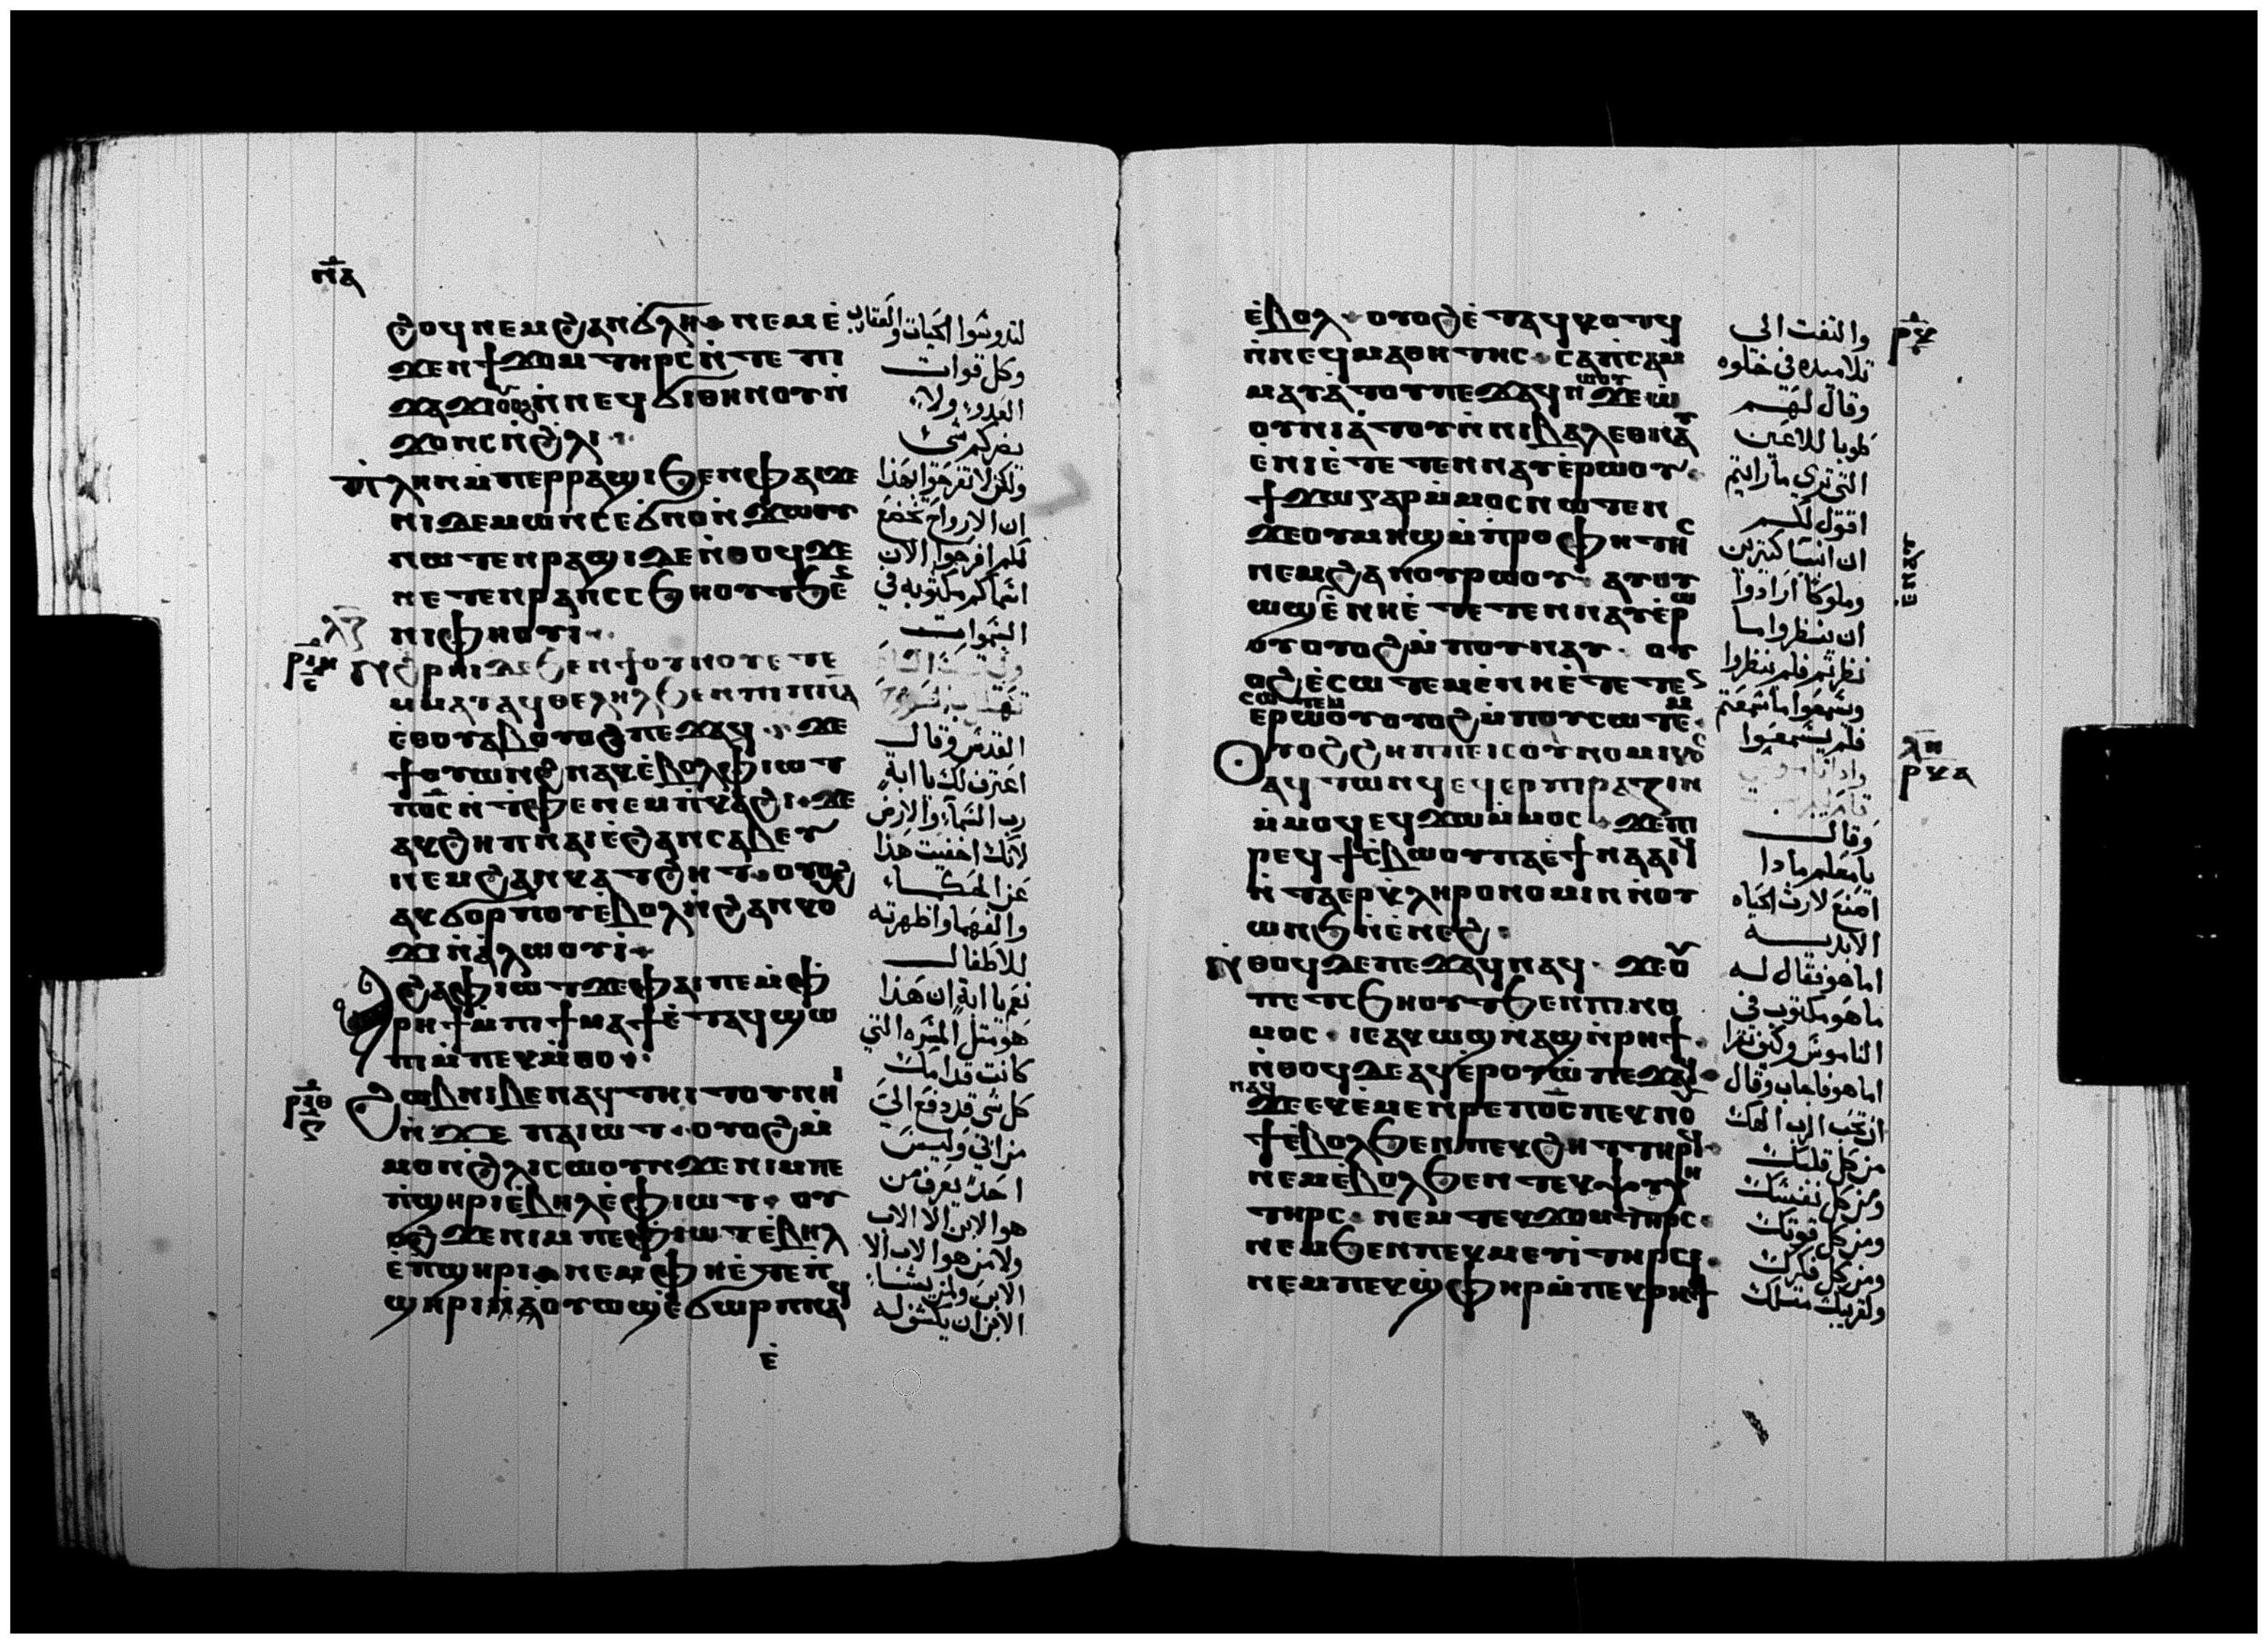 ⲛ̅ⲁ
ϩⲟϥ ⲛⲉⲙ ϩⲁⲛϭⲗⲏ ⲛⲉⲙ ⲉ̀
ϫⲉⲛ ϯϫⲟⲙ ⲧⲏⲣⲥ ⲛ̀ⲧⲉ ⲡⲓ
ϫⲁϫⲓ ⲟⲩⲟϩ ⲛ̀ⲛⲉϥϭⲓ ⲑⲏⲛⲟⲩ ⲛ̀
ϫⲟⲛⲥ ⲛ̀ϩⲗⲓ
ⲡⲗⲏⲛ ⲙ̀ⲡⲉⲣⲣⲁϣⲓ ϧⲉⲛ ⲫⲁⲓ ϫⲉ
ⲛⲓⲇⲉⲙⲱⲛ ⲥⲉϭⲛⲟⲛ ⲛ̀ϫⲱⲟⲩ
ⲛⲱⲧⲉⲛ ⲣⲁϣⲓ ⲇⲉ ⲛ̀ⲑⲟϥ ϫⲉ
ⲛⲉⲧⲉⲛⲣⲁⲛ ⲥⲥϧⲏⲟⲩⲧ ϧⲉ
ⲛⲓⲫⲏⲟⲩⲓ
ⲗ̅ⲍ̅
ⲣ̅ⲓ̅ⲏ̅
ⲉ
ⲛ̀ϩⲣⲏⲓ ⲇⲉ ϧⲉⲛ ϯⲟⲩⲛⲟⲩ ⲉⲧⲉ
ⲙ̀ⲙⲁⲩ ⲁϥⲑⲉⲗⲏⲗ ϧⲉⲛ ⲡⲓⲡⲛ̅ⲁ̅
ⲉ̀ⲑⲟⲩⲁⲃ ⲟⲩⲟϩ ⲡⲉϫⲁϥ ϫⲉ
ϯⲟⲩⲱⲛϩ ⲛⲁⲕ ⲉ̀ⲃⲟⲗ ⲫⲓⲱⲧ
ⲡⲟ̅ⲥ̅ ⲛ̀ⲧⲫⲉ ⲛⲉⲙ ⲡⲕⲁϩⲓ ϫⲉ
ⲁⲕϩⲏⲡ ⲛⲁⲓ ⲉ̀ϩⲁⲛⲥⲁⲃⲉⲩ
ⲛⲉⲙ ϩⲁⲛⲕⲁⲧϩⲏⲧ ⲟⲩⲟϩ
ⲁⲕϭⲟⲣⲡⲟⲩ ⲉ̀ⲃⲟⲗ ⲛ̀ϩⲁⲛⲕⲟ
ϫⲓ ⲛ̀ⲁ̀ⲗⲱⲟⲩⲓ̀
ⲁϩⲁ ⲫⲓⲱⲧ ϫⲉ ⲫⲁⲓ ⲡⲉ ⲙ̀ⲫ
ⲣⲏϯ ⲙ̀ⲡⲓϯⲙⲁϯ ⲉ̀ⲧⲁϥϣⲱ
ⲡⲓ ⲙ̀ⲡⲉⲕⲙ̀ⲑⲟ
ⲣ̅ⲓ̅ⲑ̅
ⲍ
ϩⲱⲃ ⲛⲓⲃⲉⲛ ⲁⲩⲧⲏⲓⲧⲟⲩ ⲛⲏⲓ
ⲛ̀ϫⲉ ⲡⲁⲓⲱⲧ ⲟⲩⲟϩ ⲙ̀
ⲙⲟⲛ ϩⲗⲓ ⲥⲱⲟⲩⲛ ϫⲉ ⲛⲓⲙ ⲡⲉ
ⲡ̀ϣⲏⲣⲓ ⲉ̀ⲃⲏⲗ ⲉ̀ⲫⲓⲱⲧ ⲟⲩ
ⲟϩ ϫⲉ ⲛⲓⲙ ⲡⲉ ⲫⲓⲱⲧ ⲉ̀ⲃⲏⲗ
ⲉ̀ⲡϣⲏⲣⲓ ⲛⲉⲙ ⲫⲏ ⲉ̀ⲧⲉ ⲡ̀
ϣⲏⲣⲓ ⲛⲁⲟⲩⲱϣ ⲉ̀ϭⲱⲣⲡ ⲛⲁϥ
ⲉ̀
لتدوشوا الحيات والعقارب
وكل قوات
العدو ولا
يضركم شي
ولكن لا تفرحوا بهذا
ان الارواح تخضع
لكم افرحوا الان
اسماكم مكتوبه في
السموات
القدس وقال
اعترف لك يا ابة
رب السماء والارض
لانك اخفيت هذا
عن الحكماء
والفهما واظهرته
للاطفال
نعم يا ابة ان هذا
هو مثل المسره التي
كانت قدامك
كل شي قد دفع الي
من ابي وليس
احد يعرف من
هو الابن الا الاب
ولا من هو الاب الا
الابن ولمن يشاء
الابن ان يكشف له
ⲉ̀ⲃⲟⲗ ⲟⲩⲟϩ ⲉ̀ⲧⲁϥⲕⲟⲧϥ
ⲛ̀ⲛⲉϥⲙⲁⲑⲏⲧⲏⲥ ⲥⲁⲡ̀ⲥⲁ ⲙ̀
ⲙⲁⲩⲁ̀ⲧⲟⲩ ⲡⲉϫⲁϥ ⲛⲱⲟⲩ ϫⲉ ⲱ̀
ⲟⲩⲛⲓⲁ̀ⲧⲟⲩ ⲛ̀ⲛⲓⲃⲁⲗ ⲉⲑⲛⲁⲩ
ⲉ̀ⲛⲏ ⲉ̀ⲧⲉⲧⲉⲛⲛⲁⲩ ⲉ̀ⲣⲱⲟⲩ
ϯϫⲱ ⲅⲁⲣ ⲙ̀ⲙⲟⲥ ⲛⲱⲧⲉⲛ
ϫⲉ ⲟⲩⲙⲏϣ ⲙ̀ⲡⲣⲟⲫⲏⲧⲏⲥ
ⲛⲉⲙ ϩⲁⲛⲟⲩⲣⲱⲟⲩ ⲁⲩⲟⲩ
ⲱϣ ⲉ̀ⲛⲏ ⲉ̀ⲧⲉⲧⲉⲛⲛⲁⲩ ⲉ̀ⲣⲱ
ⲟⲩ ⲟⲩⲟϩ ⲙ̀ⲡⲟⲩⲛⲁⲩ ⲟⲩ
ⲟϩ ⲉ̀ⲥⲱⲧⲉⲙ ⲉ̀ⲛⲏ ⲉ̀ⲧⲉⲧⲉⲛ
ⲥⲱⲧⲉⲙ
ⲉ̀ⲣⲱⲟⲩ ⲟⲩⲟϩ ⲙ̀ⲡⲟⲩⲥⲱⲧⲉⲙ
ⲟⲩⲟϩ ϩⲏⲡⲡⲉ ⲓⲥ ⲟⲩⲛⲟⲙⲓⲕⲟⲥ
ⲁϥⲧⲱⲛϥ ⲉϥⲉⲣⲡⲓⲣⲁⲍⲓⲛ
ⲙ̀ⲙⲟϥ ⲉϥϫⲱ ⲙ̀ⲙⲟⲥ ϫⲉ ⲡⲓ
ⲣⲉϥϯⲥⲃⲱ ⲟⲩ ⲡⲉ ⲉ̀ϯⲛⲁⲁⲓϥ
ⲛ̀ⲧⲁⲉⲣⲕⲗⲏⲣⲟⲛⲟⲙⲓⲛ ⲛ̀ⲟⲩ
ⲱⲛϧ ⲛ̀ⲉ̀ⲛⲉϩ
ⲛ̀ⲑⲟϥ ⲇⲉ ⲡⲉϫⲁϥ ⲛⲁϥ ϫⲉ ⲟⲩ
ⲡⲉⲧⲥϧⲏⲟⲩⲧ ϧⲉⲛ ⲡⲓⲛⲟ
ⲙⲟⲥ ⲓⲉ ⲁⲕⲱϣ ⲛ̀ⲁϣ ⲛ̀ⲣⲏϯ
ⲛ̀ⲑⲟϥ ⲇⲉ ⲁϥⲉ̀ⲣⲟⲩⲱ̀ ⲡⲉϫⲁϥ
ⲛⲁϥ
ϫⲉ ⲉⲕⲉⲙⲉⲛⲣⲉ ⲡⲟ̅ⲥ̅ ⲡⲉⲕⲛⲟⲩ
ϯ ⲉⲃⲟⲗ ϧⲉⲛ ⲡⲉⲕϩⲏⲧ ⲧⲏⲣϥ
ⲛⲉⲙ ⲉ̀ⲃⲟⲗ ϧⲉⲛ ⲧⲉⲕⲯⲩⲭⲏ
ⲧⲏⲣⲥ ⲛⲉⲙ ⲧⲉⲕϫⲟⲙ ⲧⲏⲣⲥ
ⲛⲉⲙ ϧⲉⲛ ⲡⲉⲕⲙⲉⲩⲓ̀ ⲧⲏⲣϥ
ⲛⲉⲙ ⲡⲉⲕϣ̀ⲫⲏⲣ ⲙ̀ⲡⲉⲕⲣⲏϯ
والتفت الى
تلاميده في خلوه
وقال لهم
طوبا للاعين
التي ترى ما رايتم
اقول لكم
ان انبيا كتيرين
وملوكا ارادوا
ان ينظروا ما
نظرتم فلم ينظروا
ويسمعوا ما سمعتم
فلم يسمعوا
وقال
يا معلم مادا
اصنع لارث الحياه
الابديه
اما هو فقال له
ما هو مكتوب في
الناموس وكيف تقرا
اما هو فاجاب وقال
ان تحب الرب الهك
من كل قلبك
ومن كل نفسك
ومن كل قوتك
ومن كل فكرك
وقريبك متلك
ⲣ̅ⲕ̅
ⲗ̅ⲏ̅
ⲣ̅ⲕ̅ⲁ̅